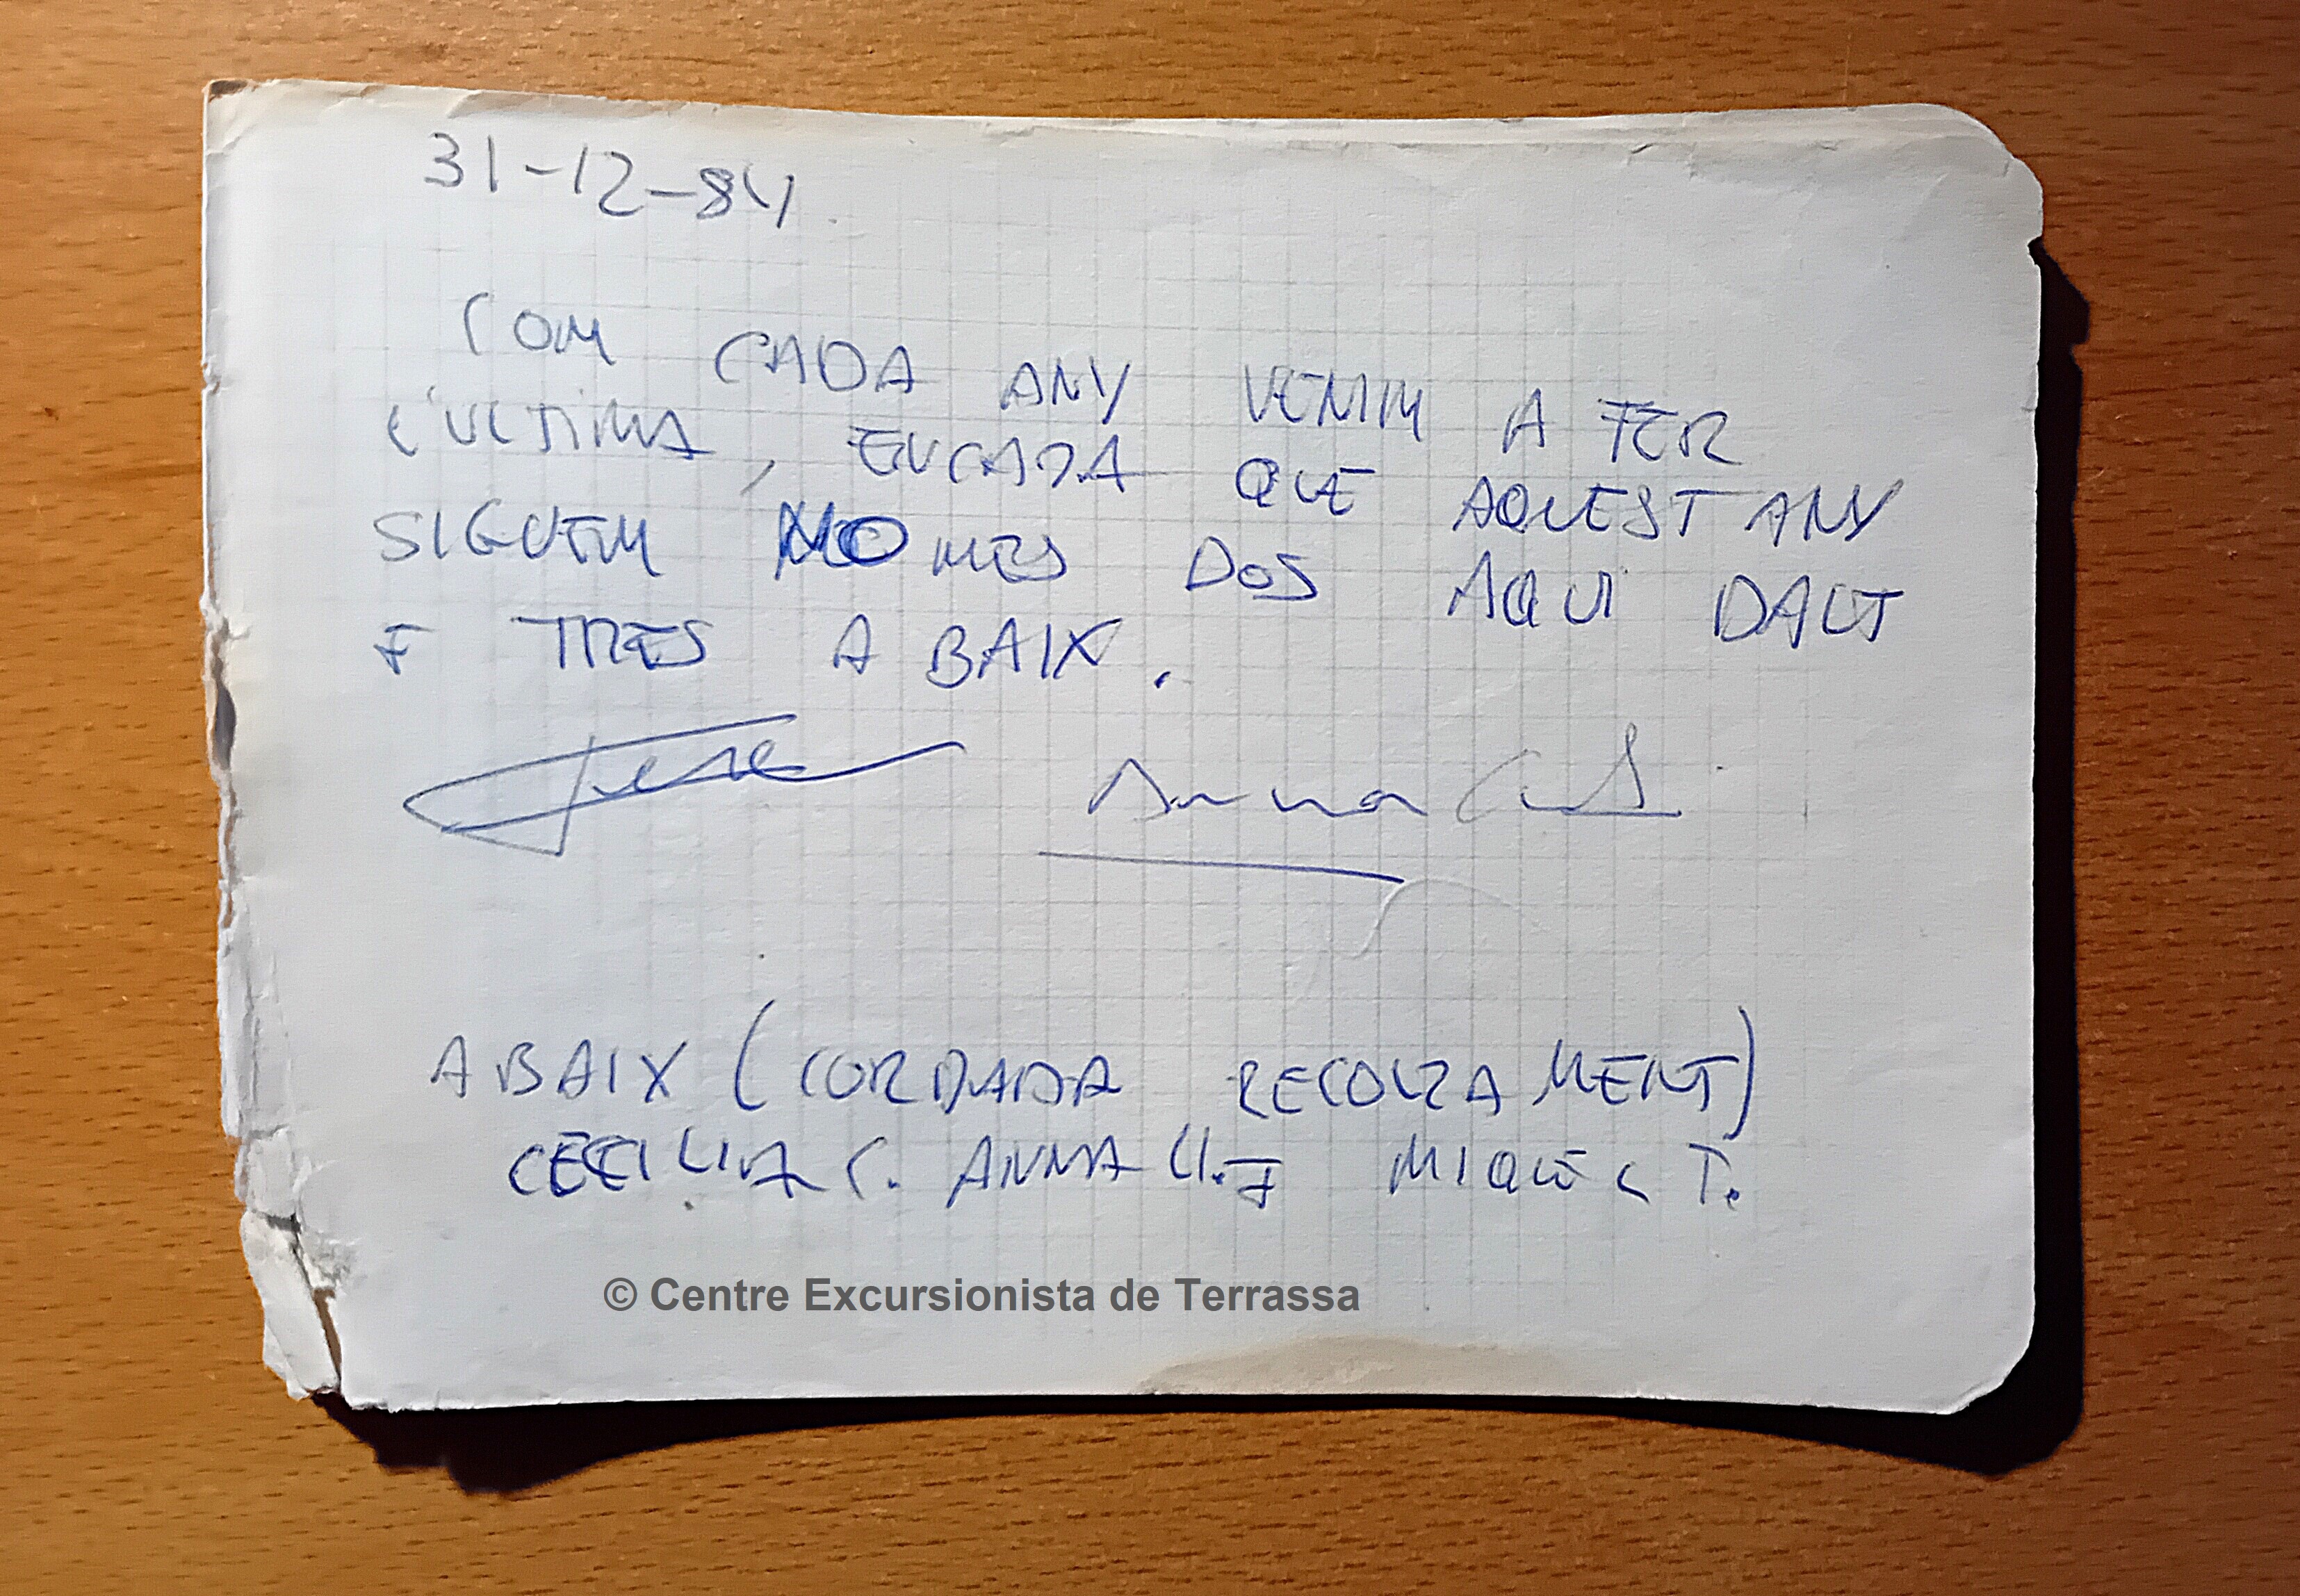 31-12-84
COM CADA ANY VENIM A FER
L'ULTIMA, ENCADA QUE AQUEST ANY
SIGUEM NOMES DOS AQUI DALT
I TRES A BAIX.
Anna
ABAIX (CORDADA RECOLZAMENT)
CECILIA C. ANNA LL. I MIQUEL T.
© Centre Excursionista de Terrassa